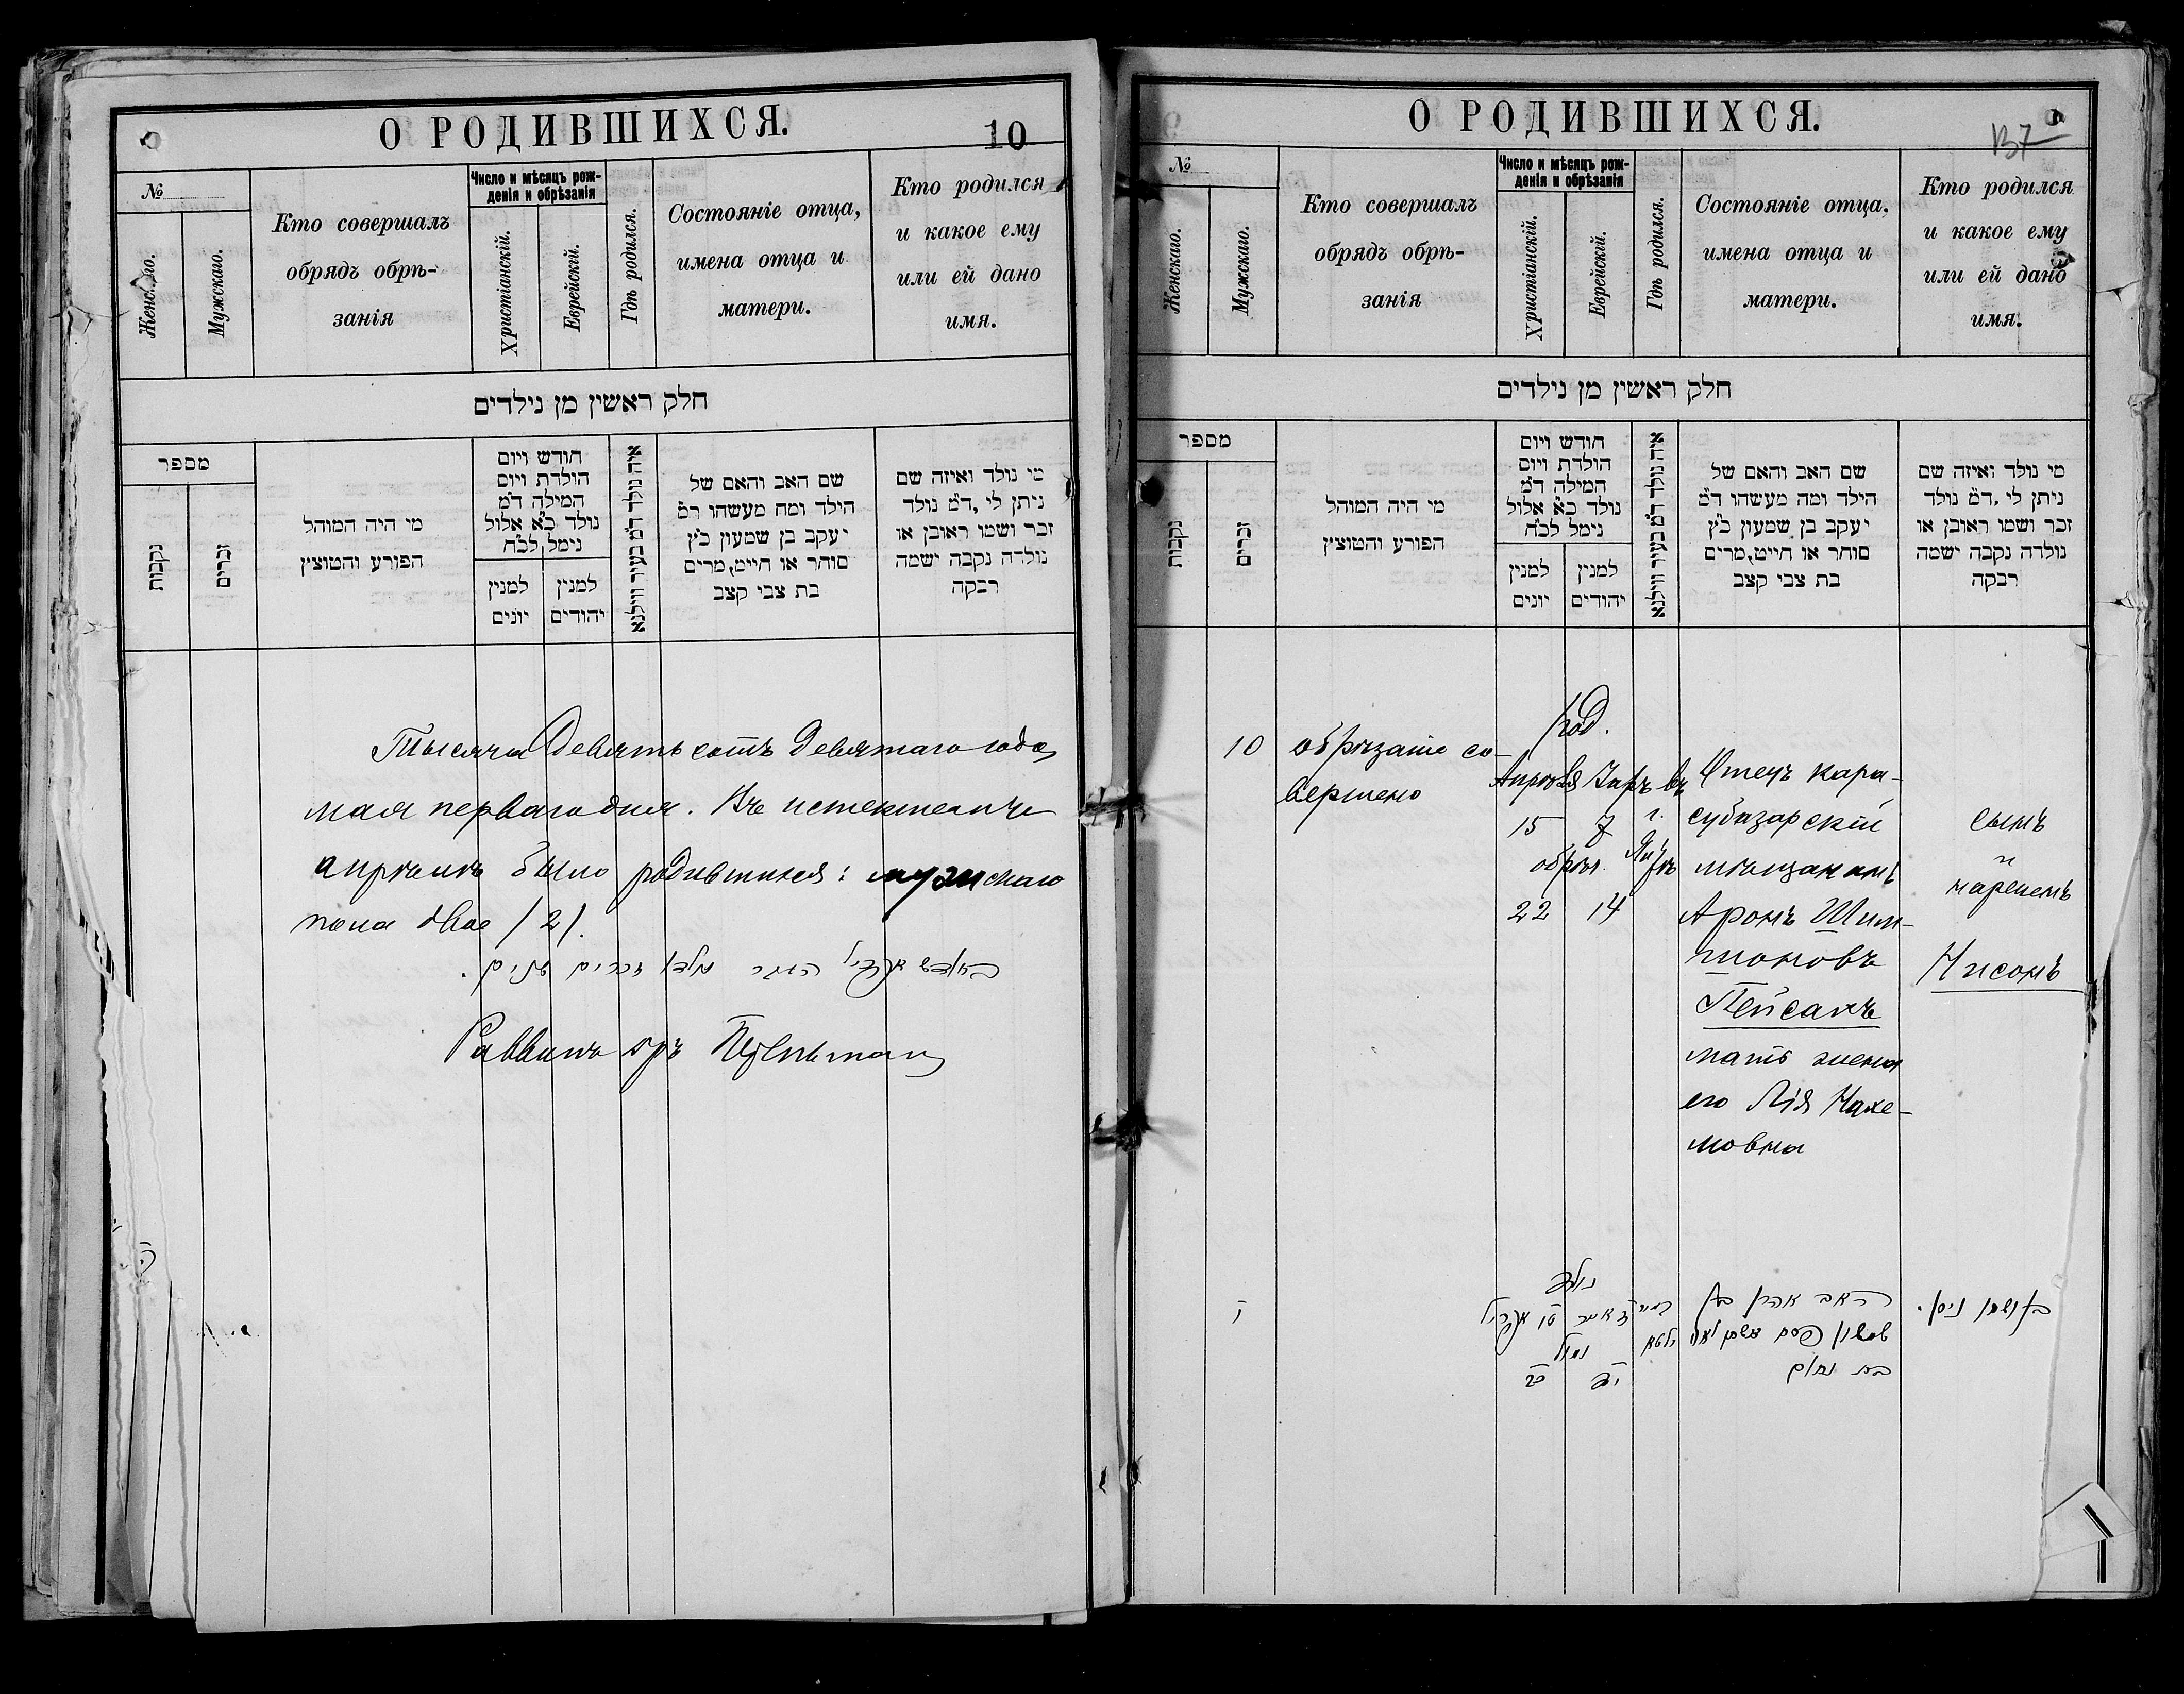 О РОДИВШИХСЯ.
10
№
Женскаго.
Мужскаго.
Кто совершалъ
обрядъ обрѣ-
занія
Число и мѣсяцъ рож-
денія и обрѣзанія
Христіанскій.
Еврейскій.
Гдѣ родился.
Состояніе отца,
имена отца и
матери.
Кто родился
и какое ему
или ей дано
имя.
חלק ראשין מן נילדים
מספר
נקבות
זכרים
מי היה המוהל
הפורע והטוצץ
חודש ויום
הולדת ויום
המילה ד״מ
נולד כ״א אלול
נימל לכ״ח
למנין
יונים
למנין
יהודים
איה נולד ד״מ בעיר ווילנא
שם האב והאם של
הילד ומה מעשהו ד״מ
יעקב בן שמעון כ״ץ
סוחר או חייט, מרים
בת צבי קצב
מי נולד ואיזה שם
ניתן לי, ד״מ נולד
זכר ושמו ראובן או
נולדה נקבה ישמה
רבקה
Тысяча девятьсотъ девятаго года
мая перваго дня. Въ истекшемъ
апрѣлѣ было родившихся: мужскаго
пола двое /2/.
בחודש אפריל העבר נולדו זכרים שנים.
Раввинъ
О РОДИВШИХСЯ.
137
№
Женскаго.
Мужскаго.
Кто совершалъ
обрядъ обрѣ-
занія
Число и мѣсяцъ рож-
денія и обрѣзанія
Христіанскій.
Еврейскій.
Гдѣ родился.
Состояніе отца,
имена отца и
матери.
Кто родился
и какое ему
или ей дано
имя.
חלק ראשין מן נילדים
מספר
נקבות
זכרים
מי היה המוהל
הפורע והטוצץ
חודש ויום
הולדת ויום
המילה ד״מ
נולד כ״א אלול
נימל לכ״ח
למנין
יונים
למנין
יהודים
איה נולד ד״מ בעיר ווילנא
שם האב והאם של
הילד ומה מעשהו ד״מ
יעקב בן שמעון כ״ץ
סוחר או חייט, מרים
בת צבי קצב
מי נולד ואיזה שם
ניתן לי, ד״מ נולד
זכר ושמו ראובן או
נולדה נקבה ישמה
רבקה
10
обрѣзаніе со-
вершено
род.
Апрѣля Іиръ
15 7
обрѣз.
22 14
въ
г.
Ялтѣ
Отецъ кара-
субазарскій
мѣщанинъ
Аронъ Шим-
шоновъ
Пейсахъ
мать жена
его Лія Нахе-
мовна
сынъ
и
нареченъ
Нисонъ
י
נולד
ז אייר טו אפריל
נמול
יד כב
בעיר
ילטא
האב אהרן בן
שמשון פסח אשתו לאה
בת נחום
בן ושמו ניסן.